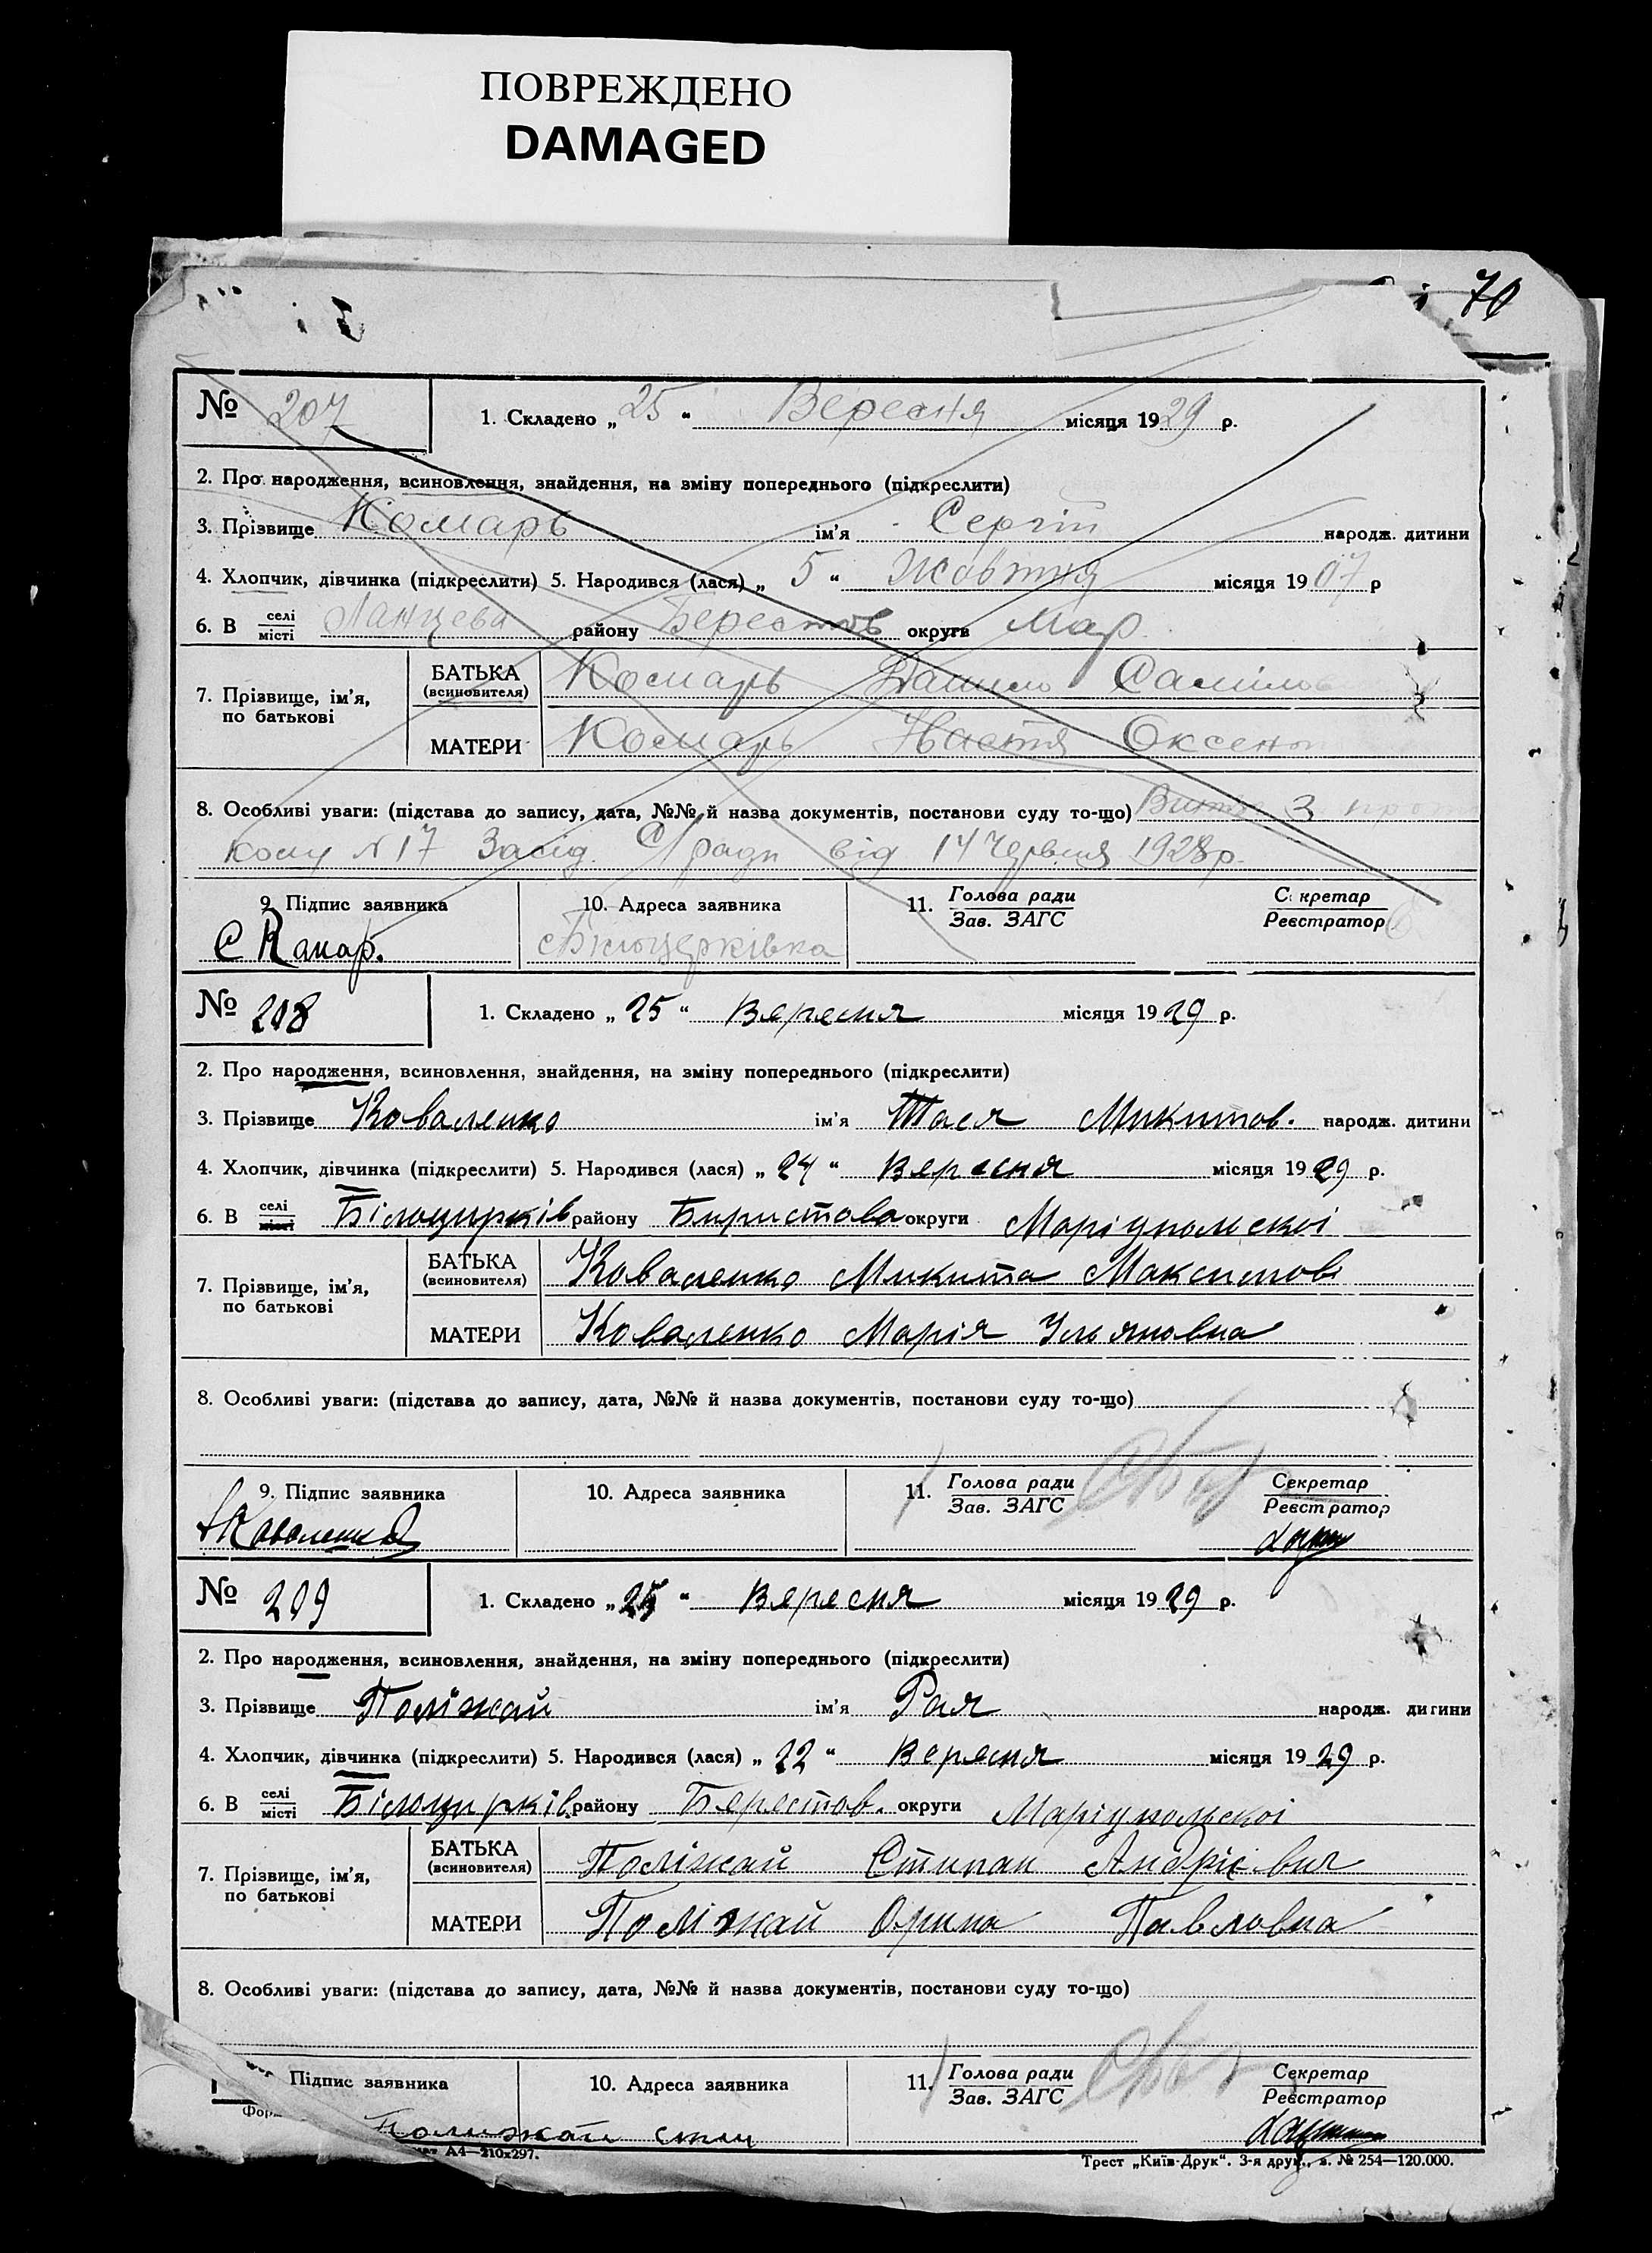 ПОВРЕЖДЕНО
DAMAGED
70
№ 207 1. Складено „25“ Вересня місяця 1929 р.
2. Про народження, всиновлення, знайдення, на зміну попереднього (підкреслити)
3. Прізвище Комарь ім'я Сергій народж. дитини
4. Хлопчик, дівчинка (підкреслити) 5. Народився (лася) „5“ Жовтня місяця 1907 р
6. В селі місті Ланцева району Берестов округи Мар.
7. Прізвище, ім'я, по батькові
БАТЬКА (всиновителя) Комарь Данило Самілов
МАТЕРИ Комарь Настя Оксенов
8. Особливі уваги: (підстава до запису, дата, №№ й назва документів, постанови суду то-що) Витяг З прото
колу №17 Засід. С/ради від 14 Червня 1928р.
9. Підпис заявника 10. Адреса заявника 11. Голова ради Секретар
Зав. ЗАГС Реєстратор
С Камар. с Білоцерківка
№ 208 1. Складено „25“ Вересня місяця 1929 р.
2. Про народження, всиновлення, знайдення, на зміну попереднього (підкреслити)
3. Прізвище Коваленко ім'я Тася Микитов. народж. дитини
4. Хлопчик, дівчинка (підкреслити) 5. Народився (лася) „24“ Вересня місяця 1929 р.
6. В селі місті Білоцирків району Биристова округи Маріупольскоі
7. Прізвище, ім'я, по батькові
БАТЬКА (всиновителя) Коваленко Микита Максимов
МАТЕРИ Коваленко Марія Ульяновна
8. Особливі уваги: (підстава до запису, дата, №№ й назва документів, постанови суду то-що)
9. Підпис заявника 10. Адреса заявника 11. Голова ради Секретар
Зав. ЗАГС Реєстратор
Коваленко
№ 209 1. Складено „25“ Вересня місяця 1929 р.
2. Про народження, всиновлення, знайдення, на зміну попереднього (підкреслити)
3. Прізвище Поліжай ім'я Рая народж. дитини
4. Хлопчик, дівчинка (підкреслити) 5. Народився (лася) „22“ Вересня місяця 1929 р.
6. В селі місті Білоцирків. району Берестов. округи Маріупольскоі
7. Прізвище, ім'я, по батькові
БАТЬКА (всиновителя) Поліжай Стипан Андрієвич
МАТЕРИ Поліжай Орина Павловна
8. Особливі уваги: (підстава до запису, дата, №№ й назва документів, постанови суду то-що)
Підпис заявника 10. Адреса заявника 11. Голова ради Секретар
Зав. ЗАГС Реєстратор
Полижай
А4—210х297.
Трест „Київ-Друк“. 3-я друк., з. № 254—120.000.